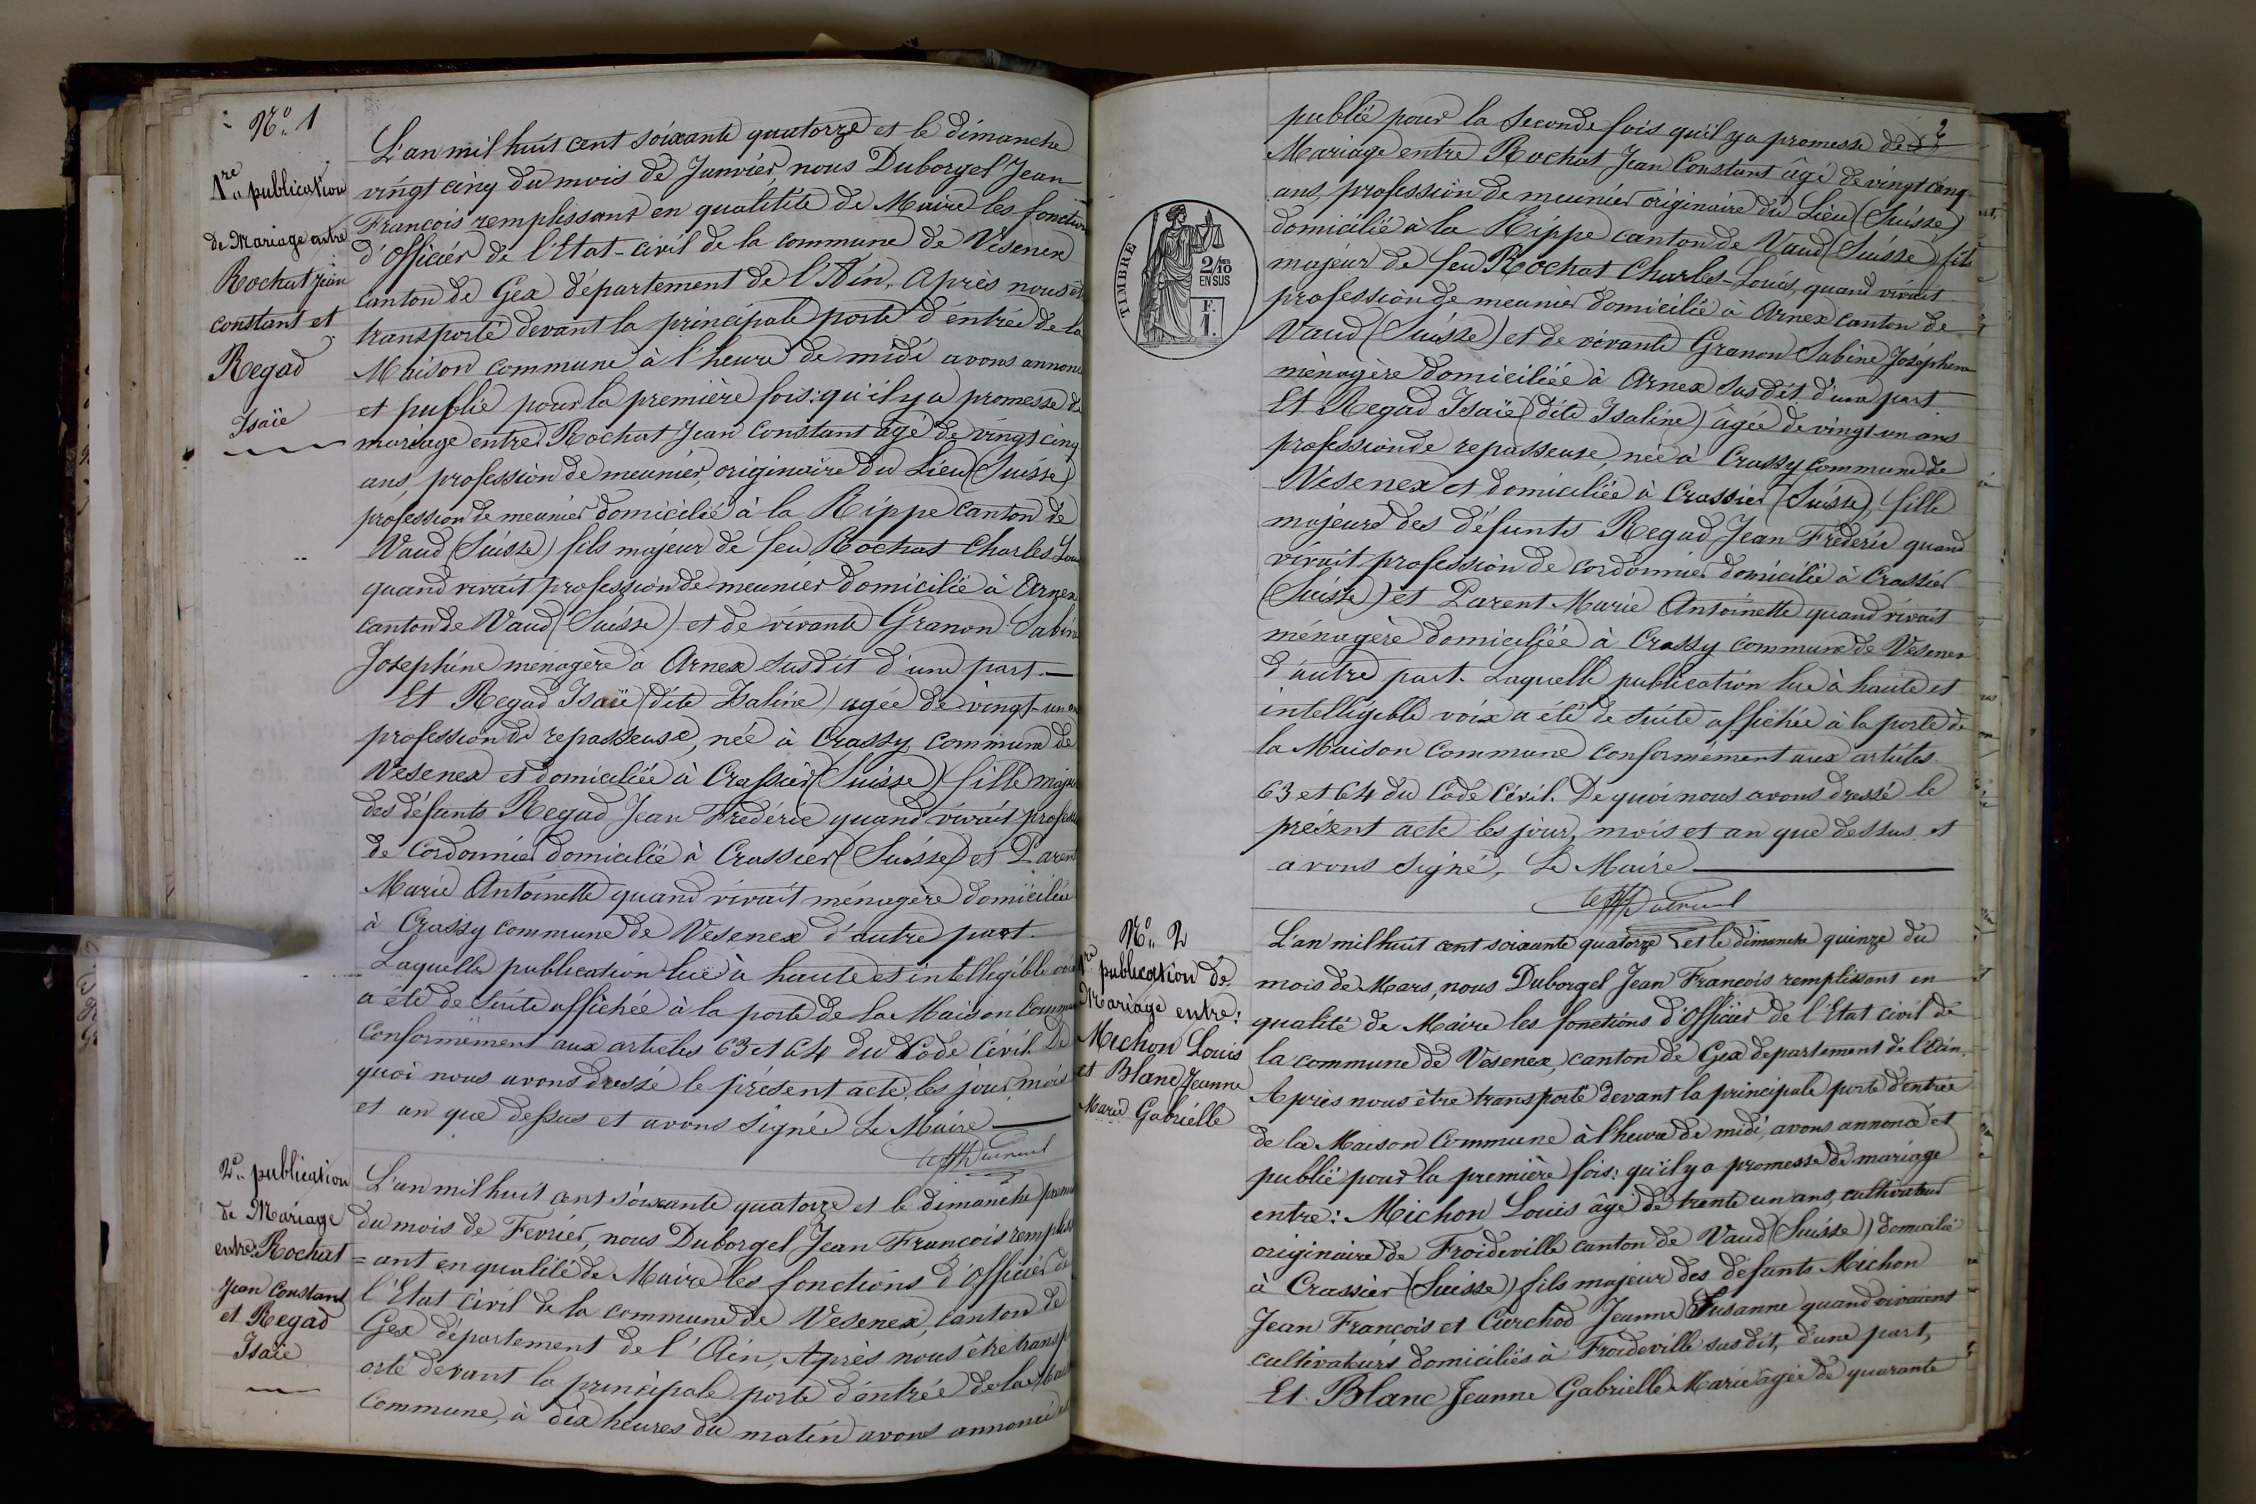 N° 1
1re publication
de Mariage entre
Rochat Jean
constant et
Regad
Isaïe
L'an mil huit cent soixante quatorze et le dimanche
vingt cinq du mois de Janvier, nous Duborgel Jean
François remplissant en qualitité de Maire les fonctions
d'Officier de l'Etat-civil de la commune de Vésenex
canton de Gex département de l'Ain. Après nous et
transporté devant la principale porte d'entrée de la
Maison commune à l'heure de midi avons annoncé
et publié pour la première fois: qu'il y a promesse de
mariage entre Rochat Jean constant âgé de vingt cinq
ans, profession de meunier, originaire du Lieu (Suisse)
profession de meunier domicilié à la Rippe canton de
Vaud (Suisse) fils majeur de feu Rochat Charles Louis
quand vivait profession de meunier domicilié à Arnex
canton de Vaud (Suisse) et de vivante Granon Sabine
Josephine ménagère à Arnex susdit d'une part.
Et Regad Isaïe (dite Isaline) agée de vingt-un ans
profession de repasseuse, née à Crassy commune de
Vesenex et domiciliée à Crassier (Suisse) fille majeure
des défunts Regad Jean Frédéric quand vivait profession
de Cordonnier domicilié à Crassier (Suisse) et Parent
Marie Antoinette quand vivait ménagère domiciliée
à Crassy commune de Vesenex d'autre part.
Laquelle publication lue à haute et intelligible voix
a été de suite affichée à la porte de la Maison Commune
conformément aux articles 63 et 64 du Code Civil. De
quoi nous avons dressé le présent acte, les jour, mois
et an que dessus et avons signé Le Maire
2e publication
de Mariage
entre Rochat
Jean Constant
et Regad
Isaïe
L'an mil huit cent soixante quatorze et le dimanche premier
du mois de Fevrier, nous Duborgel Jean François rempliss
=ant en qualité de Maire les fonctions d'Officier de
l'Etat civil de la commune de Vesenex, canton de
Gex département de l'Ain, Après nous être transp
orté devant la principale porte d'entrée de la Maison
Commune, à dix heures du matin avons annoncé et
TIMBRE
2/10
EN SUS
F.
1.
publié pour la seconde fois qu'il y a promesse de
Mariage entre Rochat Jean Constant âgé de vingt cinq
ans, profession de meunier originaire du Lieu (Suisse)
domicilié à la Rippe canton de Vaud (Suisse) fils
majeur de feu Rochat Charles-Louis, quand vivait
profession de meunier domicilié à Arnex canton de
Vaud (Suisse) et de vivante Granon Sabine Joséphine
ménagère domiciliée à Arnex susdit d'une part.
Et Regad Isaïe (dite Isaline) âgée de vingt un ans
profession de repasseuse, née à Crassy commune de
Vésenex et domiciliée à Crassier (Suisse), fille
majeure des défunts Regad Jean Frederic quand
vivait profession de cordonnier domicilié à Crassier
(Suisse) et Parent Marie Antoinette quand vivait
ménagère domiciliée à Crassy commune de Vesenex
d'autre part. Laquelle publication lue à haute et
intelligible voix a été de suite affichée à la porte de
la Maison Commune conformément aux articles
63 et 64 du Code Civil. De quoi nous avons dressé le
présent acte les jour, mois et an que dessus et
avons signé, Le Maire
N° 2
1re publication de
Mariage entre:
Michon Louis
et Blanc Jeanne
Marie Gabrielle
L'an mil huit cent soixante quatorze et le dimanche quinze du
mois de Mars, nous Duborgel Jean François remplissant en
qualité de Maire les fonctions d'Officier de l'Etat civil de
la commune de Vesenex, canton de Gex departement de l'Ain.
Après nous être transporté devant la principale porte d'entrée
de la Maison Commune à l'heure de midi, avons annoncé et
publié pour la première fois: qu'il y a promesse de mariage
entre: Michon Louis âgé de trente un ans, cultivateur
originaire de Froideville canton de Vaud (Suisse) domicilié
à Crassier (Suisse) fils majeur des défunts Michon
Jean François et Curchod Jeanne Susanne quand vivaient
cultivateurs domiciliés à Froideville susdit, d'une part,
Et Blanc Jeanne Gabrielle Marie âgée de quarante